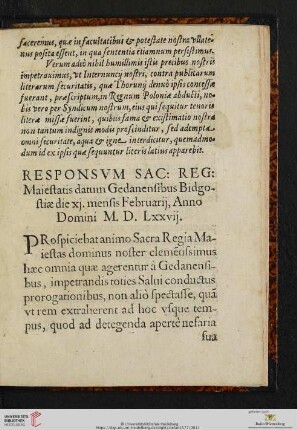 faceremus, quæ in facultatibus & potestate nostra vllate-
nus posita essent, in qua sententia etiamnum persistimus.
Verum adeò nihil humillimis istis precibus nostris
impetrauimus, vt Internuncij nostri, contra publicarum
literarum securitatis, quæ Thorunij denuò ipsis concessæ
fuerant, præscriptum, in Regnum Poloniæ abducti, no-
bis vero per Syndicum nostrum, eius qui sequitur tenoris
literæ missæ fuerint, quibus fama & existimatio nostra
non tantum indignis modis proscinditur, sed adempta
omni securitate, aqua & igne interdicitur, quemadmo-
dum id ex ipsis quæ sequuntur literis latius apparebit.
RESPONSVM SAC: REG:
Maiestatis datum Gedanensibus Bidgo-
stiæ die xj. mensis Februarij, Anno
Domini M. D. Lxxvij.
PRospiciebat animo Sacra Regia Ma-
iestas dominus noster clementissimus
hæc omnia quæ agerentur â Gedanensi-
bus, impetrandis toties Salui conductus
prorogationibus, non aliò spectasse, quā
vt rem extraherent ad hoc vsque tem-
pus, quod ad detegenda apertè nefaria
sua
UNIVERSITÄTS-
BIBLIOTHEK
HEIDELBERG
© Universitätsbibliothek Heidelberg
Baden-Württemberg